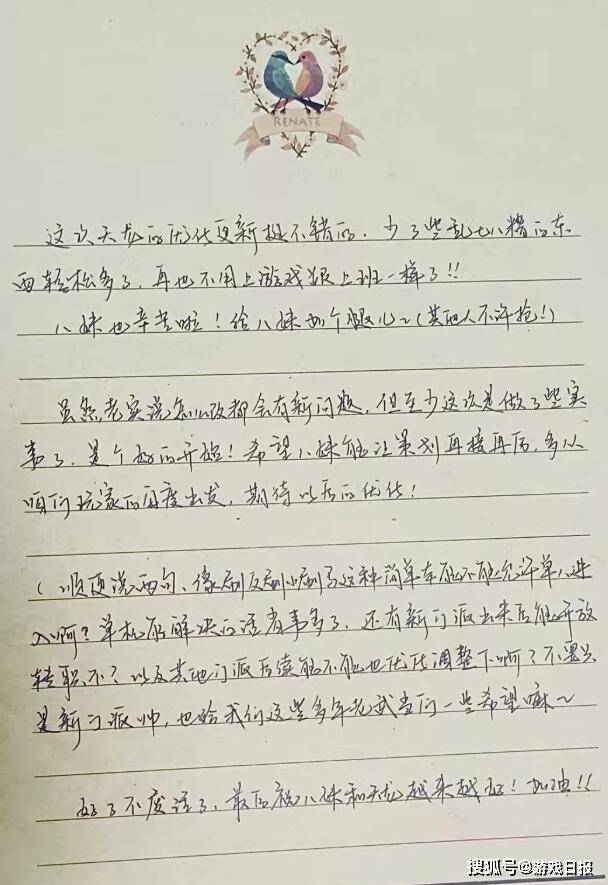 RENATE
这次天龙的优化更新挺不错的，少了些乱七八糟的东
西轻松多了，再也不用上游戏跟上班一样了!!
八妹也辛苦啦！给八妹加个腿儿~(其他人不许抢!)
虽然老实说怎么改都会有新问题，但至少这次是做了些实
事了，是个好的开始！希望八妹能让策划再接再厉，多从
咱们玩家的角度出发，期待以后的优化！
(顺便说两句，像刷反刷小刷了这种简单本能不能允许单人进
入啊？单机能解决的话省事多了，还有新门派出来后能开放
转职不？以及其他门派后续能不能也优化调整下啊？不要只
是新门派帅，也给我们这些多年老武当们一些希望嘛~
好了不废话了，最后祝八妹和天龙越来越好！加油!!
搜狐号@游戏日报